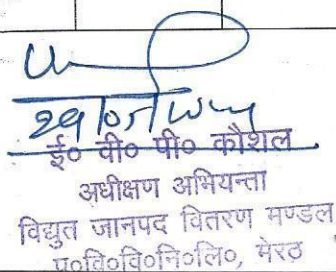 ई० वी० पी० कौशल
अधीक्षण अभियन्ता
विद्युत जानपद वितरण मण्डल
प०वि०वि०नि०लि०, मेरठ